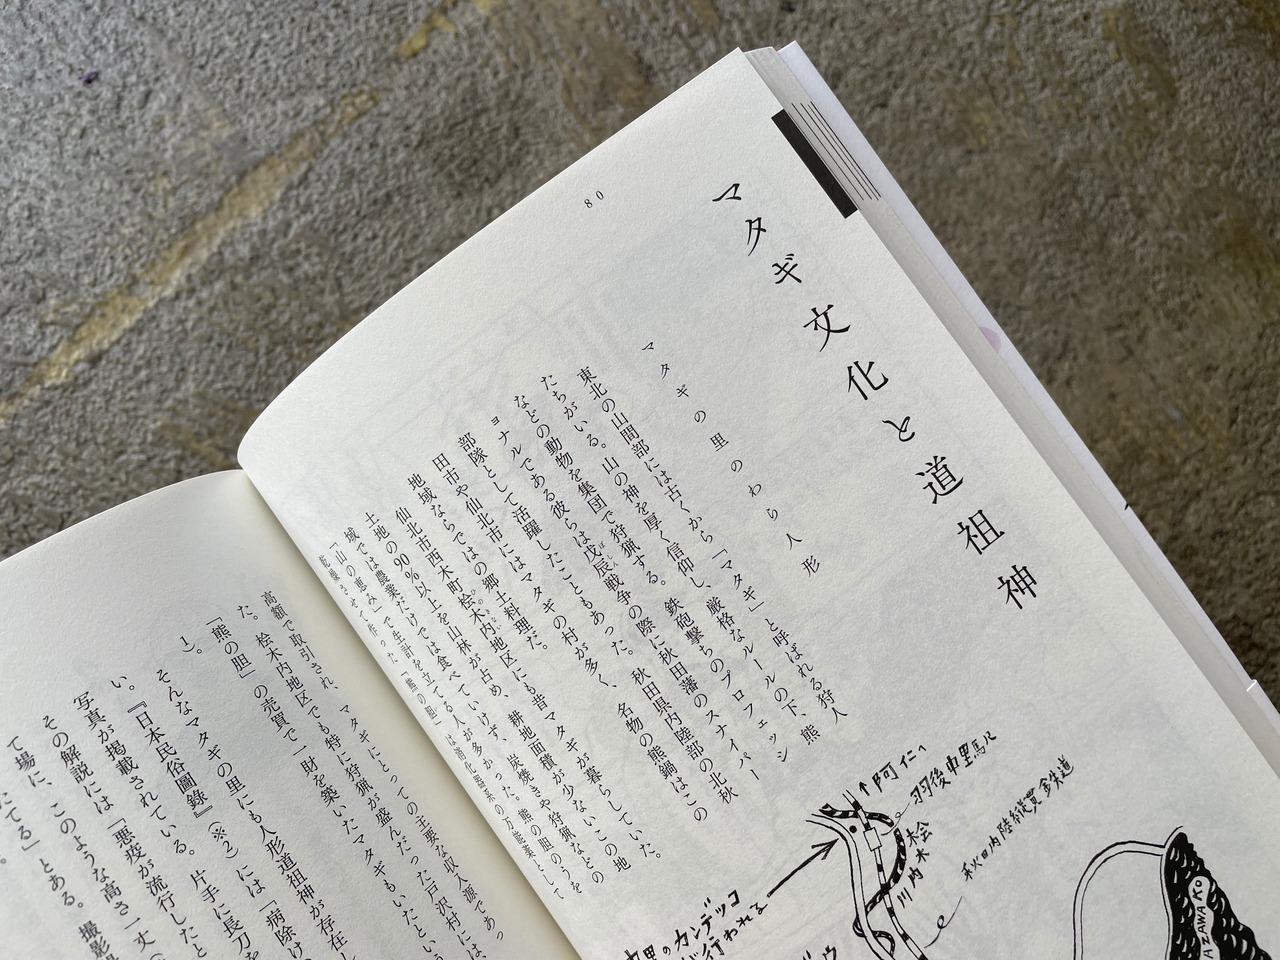 80
マタギ文化と道祖神
マタギの里のわら人形
東北の山間部には古くから「マタギ」と呼ばれる狩人
たちがいる。山の神を厚く信仰し、厳格なルールの下、熊
などの動物を集団で狩猟する。鉄砲撃ちのプロフェッシ
ョナルである彼らは戊辰戦争の際に秋田藩のスナイパー
部隊として活躍したこともあった。秋田県内陸部の北秋
田市や仙北市にはマタギの村が多く、名物の熊鍋はこの
地域ならではの郷土料理だ。
仙北市西木町桧木内地区にも昔マタギが暮らしていた。
土地の90%以上を山林が占め、耕地面積が少ないこの地
域では農業だけでは食べていけず、炭焼きや狩猟などの
「山の恵み」で生計を立てる人が多かった。熊の胆のうを
乾燥させて作った「熊の胆」は消化器系の万能薬として
高額で取引され、マタギにとっての主要な収入源であっ
た。桧木内地区でも特に狩猟が盛んだった戸沢村には
「熊の胆」の売買で一財を築いたマタギもいたという
1)。
そんなマタギの里にも人形道祖神が存在し
い。『日本民俗圖錄』(※2)には「病除け
写真が掲載されている。片手に長刀を
その解説には「悪疫が流行したと
て場に、このような高さ一丈
たてる」とある。撮影
阿仁へ
羽後中里駅
桧木内川
秋田内陸縦貫鉄道
中里のカンデッコ
行われる
AZAWAKO